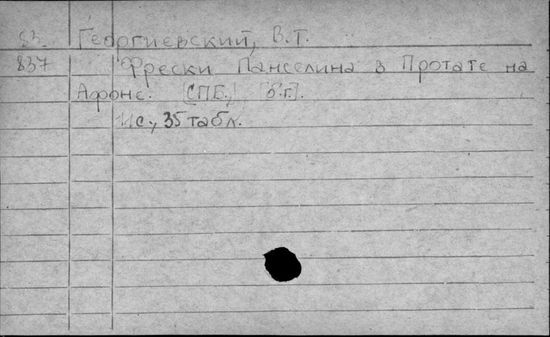 83. Георгиевский, В.Т.
837 Фрески Панселина в Протате на
Афоне. [СПБ., б.г.].
11с., 35 табл.